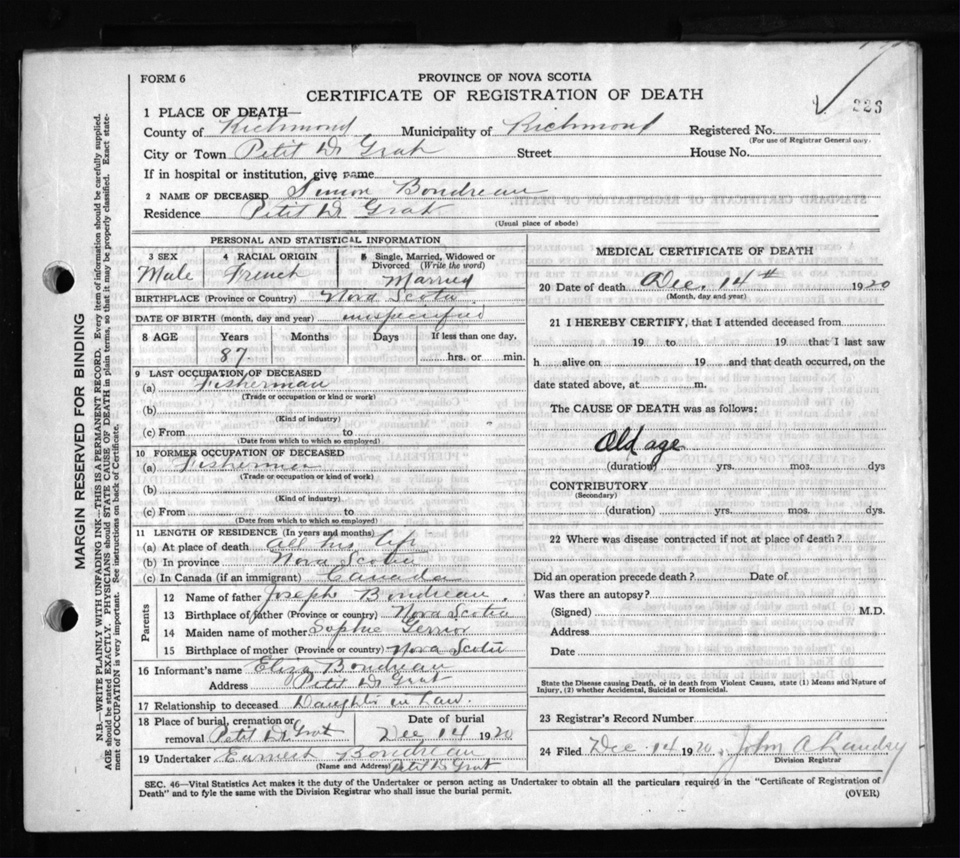 FORM 6
PROVINCE OF NOVA SCOTIA
CERTIFICATE OF REGISTRATION OF DEATH
223
1 PLACE OF DEATH—
County of Richmond Municipality of Richmond Registered No.
(For use of Registrar General only.
City or Town Petit D Grat Street House No.
If in hospital or institution, give name
2 NAME OF DECEASED Simon Boudreau
Residence Petit D Grat
(Usual place of abode)
PERSONAL AND STATISTICAL INFORMATION
3 SEX Male
4 RACIAL ORIGIN French
5 Single, Married, Widowed or Divorced (Write the word) Married
BIRTHPLACE (Province or Country) Nova Scotia
DATE OF BIRTH (month, day and year) unspecified
8 AGE Years 87 Months Days If less than one day, hrs. or min.
9 LAST OCCUPATION OF DECEASED
(a) Fisherman
(Trade or occupation or kind or work)
(b)
(Kind of industry)
(c) From to
(Date from which to which so employed)
10 FORMER OCCUPATION OF DECEASED
(a) Fisherman
(Trade or occupation or kind or work)
(b)
(Kind of industry)
(c) From to
(Date from which to which so employed)
11 LENGTH OF RESIDENCE (In years and months)
(a) At place of death all his life
(b) In province Nova Scotia
(c) In Canada (if an immigrant) Canada
Parents
12 Name of father Joseph Boudreau.
13 Birthplace of father (Province or country) Nova Scotia
14 Maiden name of mother Sophie Gerrior
15 Birthplace of mother (Province or country) Nova Scotia
16 Informant's name Eliza Boudreau
Address Petit D Grat
17 Relationship to deceased Daughter in Law.
18 Place of burial, cremation or removal Petit D Grat Date of burial Dec 14 1920
19 Undertaker Earnest Boudreau
(Name and Address) Petit D Grat
MEDICAL CERTIFICATE OF DEATH
20 Date of death Dec. 14th 1920
(Month, day and year)
21 I HEREBY CERTIFY, that I attended deceased from
19 to 19 that I last saw
h alive on 19 and that death occurred, on the
date stated above, at m.
The CAUSE OF DEATH was as follows:
Old age
(duration) yrs. mos. dys
CONTRIBUTORY
(Secondary)
(duration) yrs. mos. dys.
22 Where was disease contracted if not at place of death?
Did an operation precede death? Date of
Was there an autopsy?
(Signed) M.D.
Address
Date
State the Disease causing Death, or in death from Violent Causes, state (1) Means and Nature
of Injury, (2) whether Accidental, Suicidal or Homicidal.
23 Registrar's Record Number
24 Filed Dec. 14 1920 John A Landry
Division Registrar
SEC. 46—Vital Statistics Act makes it the duty of the Undertaker or person acting as Undertaker to obtain all the particulars required in the "Certificate of Registration of
Death" and to fyle the same with the Division Registrar who shall issue the burial permit.
(OVER)
MARGIN RESERVED FOR BINDING
N.B.—WRITE PLAINLY WITH UNFADING INK—THIS IS A PERMANENT RECORD. Every item of information should be carefully supplied.
AGE should be stated EXACTLY. PHYSICIANS should STATE CAUSE OF DEATH in plain terms, so that it may be properly classified. Exact state-
ment of OCCUPATION is very important. See instructions on back of Certificate.